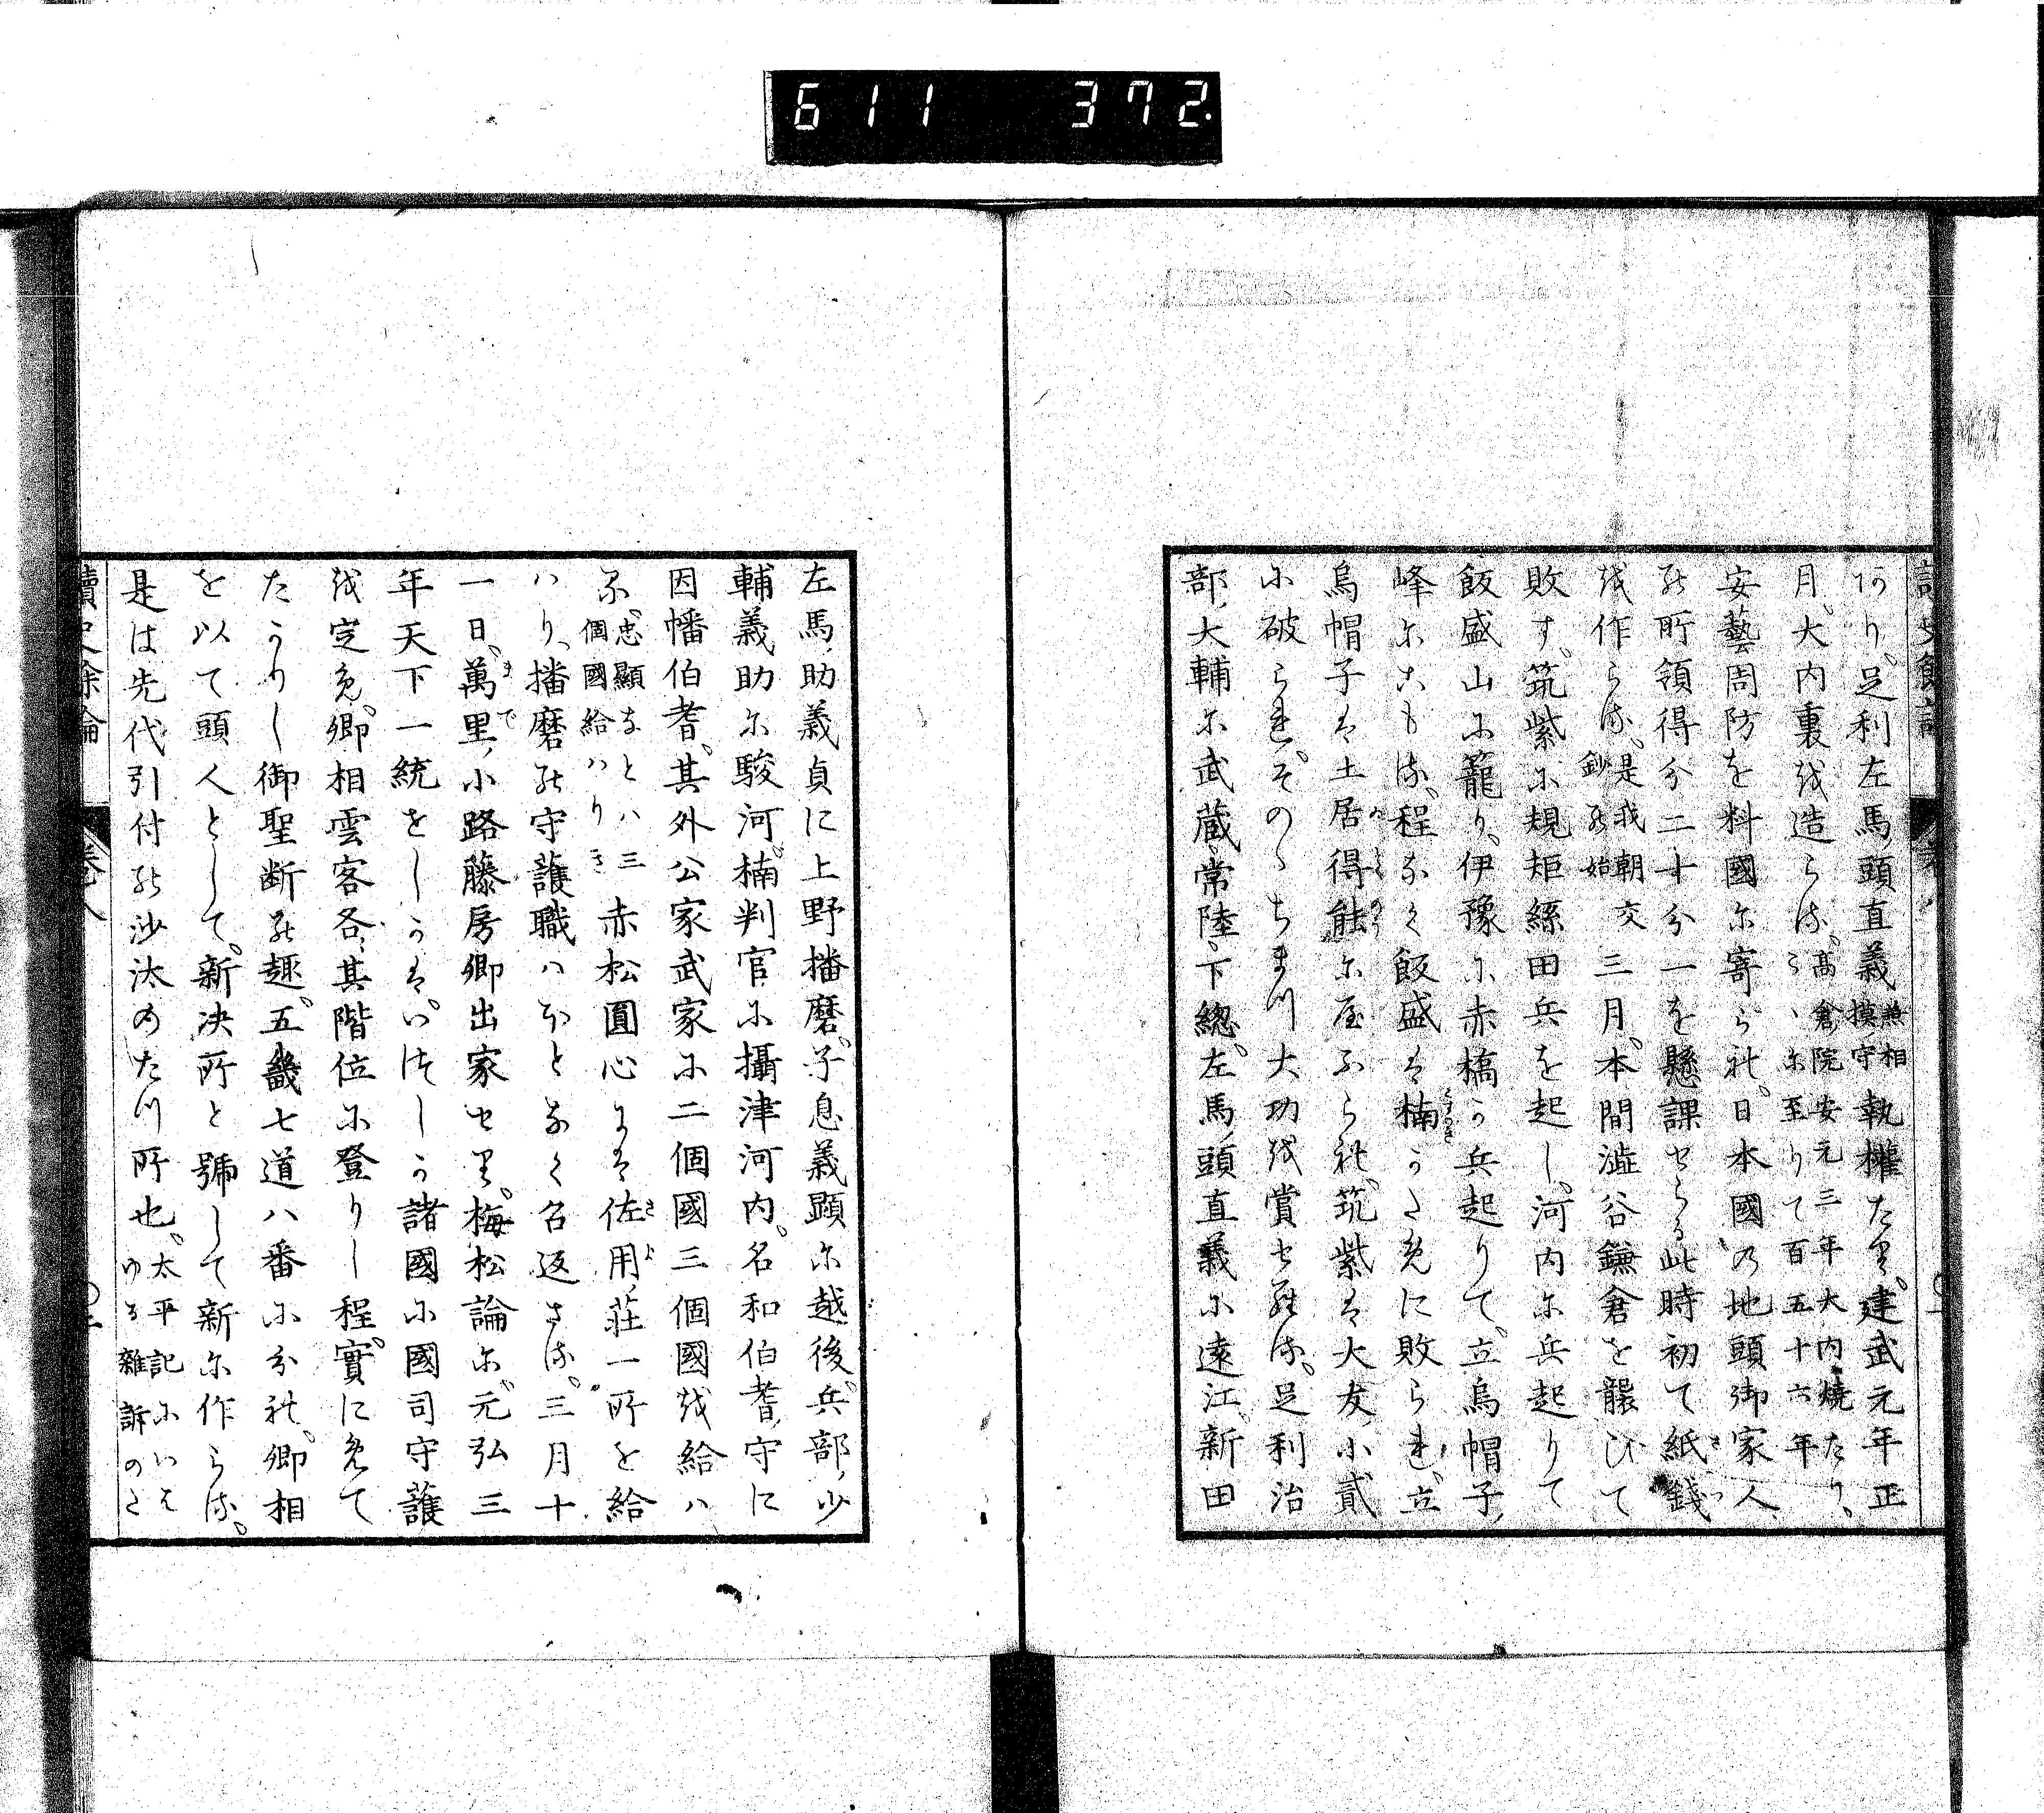 611 372.
あり、足利左馬頭直義兼相摸守執權たり。建武元年正
月。大内裏を造らる。高倉院安元三年大内燒たり。こゝに至りて百五十六年
安藝周防を料國に寄らる。日本國の地頭御家人
の所領得分二十分一を懸課せらる此時初て紙錢
を作らる。是我朝交鈔の始三月。本間澁谷鎌倉を襲ひて
敗す。筑紫に規矩絲田兵を起し、河内に兵起りて
飯盛山に籠り、伊豫に赤橋か兵起りて。立烏帽子、
峰にこもる。程なく飯盛は楠かために敗られ。立
烏帽子は土居得能に屋ふらる。筑紫は大友、小貳
に破られ。そのゝちまつ大功を賞せらる。足利治
部、大輔に武藏、常陸、下總。左馬、頭直義に遠江、新田
左馬、助義貞に上野播磨。子息義顯に越後、兵部、少
輔義助に駿河。楠判官に攝津河内。名和伯耆、守に
因幡伯耆。其外公家武家に二個國三個國を給は
る。忠顯なとハ三個國給はりき赤松圓心には佐用、莊一所を給
ハり、播磨の守護職ハほとなく召返さる。三月十
一日。萬里、小路藤房卿出家せり。梅松論に。元弘三
年天下一統をしかは。いつしか諸國に國司守護
を定め。卿相雲客各、其階位に登りし程。實にめて
たかりし御聖断の趣。五畿七道八番に分れ。卿相
を以て頭人として。新決所と號して新に作らる。
是は先代引付の沙汰のたつ所也。太平記にいはゆる雜訴のさ
讀史餘論 卷八